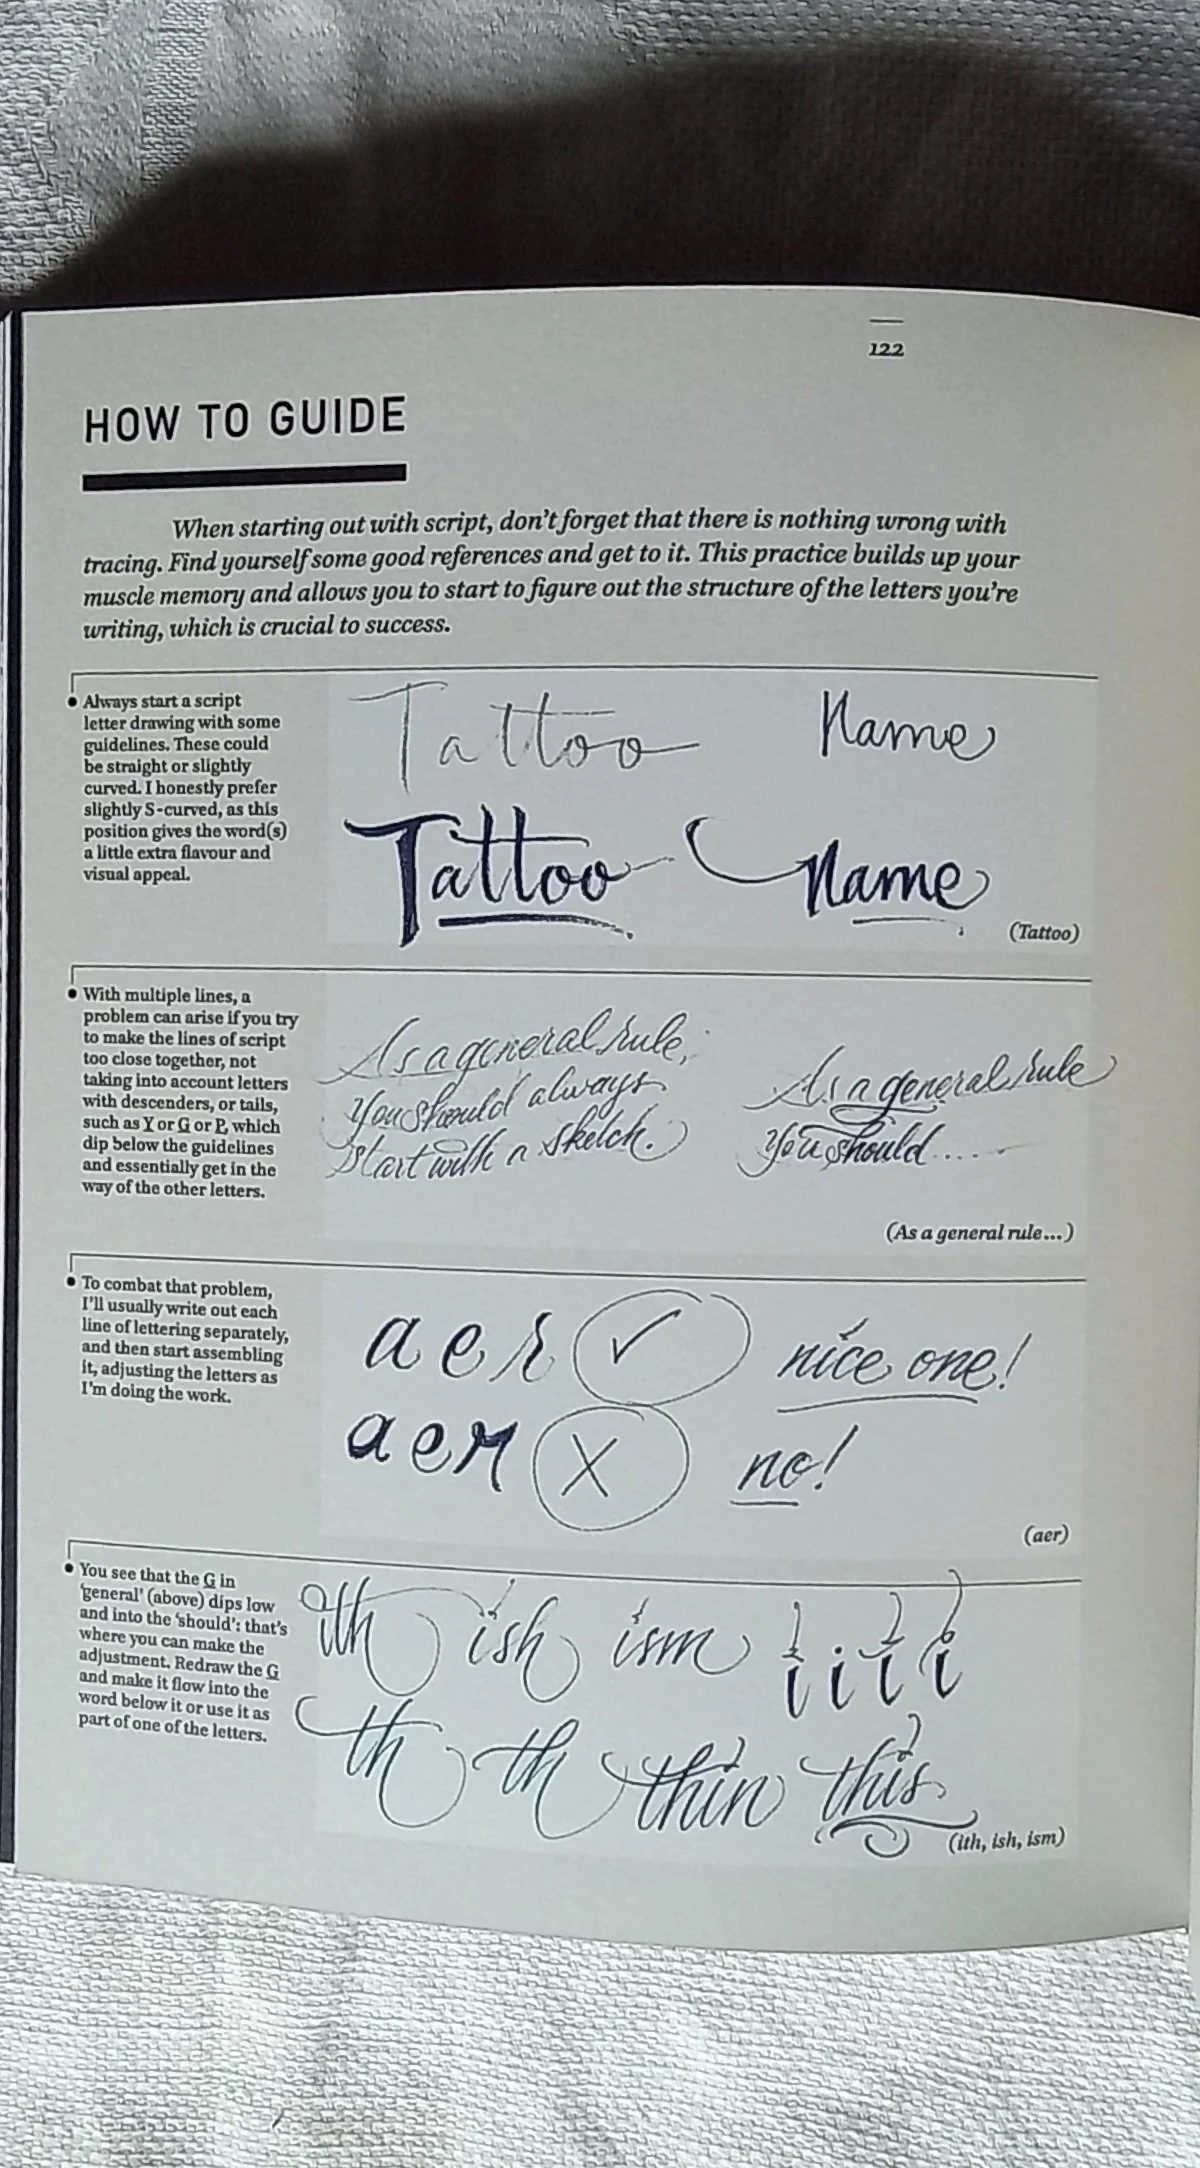 122
HOW TO GUIDE
When starting out with script, don't forget that there is nothing wrong with
tracing. Find yourself some good references and get to it. This practice builds up your
muscle memory and allows you to start to figure out the structure of the letters you're
writing, which is crucial to success.
Always start a script
letter drawing with some
guidelines. These could
be straight or slightly
curved. I honestly prefer
slightly S-curved, as this
position gives the word(s)
a little extra flavour and
visual appeal.
Tattoo Name
Tattoo Name
(Tattoo)
With multiple lines, a
problem can arise if you try
to make the lines of script
too close together, not
taking into account letters
with descenders, or tails,
such as Y or G or P, which
dip below the guidelines
and essentially get in the
way of the other letters.
As a general rule,
you should always
start with a sketch.
As a general rule
you should.....
(As a general rule...)
To combat that problem,
I'll usually write out each
line of lettering separately,
and then start assembling
it, adjusting the letters as
I'm doing the work.
aer ✓ nice one!
aer X no!
(aer)
You see that the G in
'general' (above) dips low
and into the 'should': that's
where you can make the
adjustment. Redraw the G
and make it flow into the
word below it or use it as
part of one of the letters.
ith ish ism i i i i
th th thin this
(ith, ish, ism)